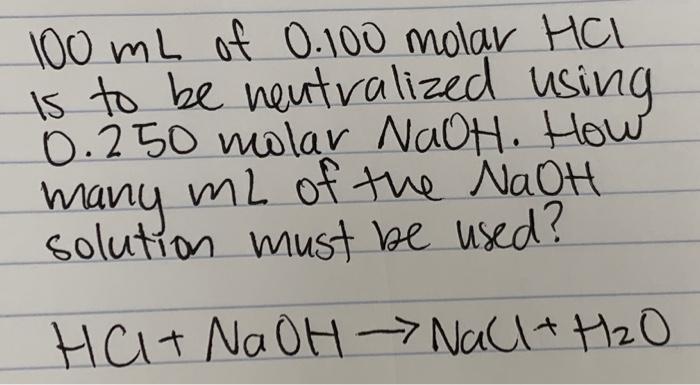 100 mL of 0.100 molar HCl
is to be neutralized using
0.250 molar NaOH. How
many mL of the NaOH
solution must be used?
HCl + NaOH → NaCl + H₂O